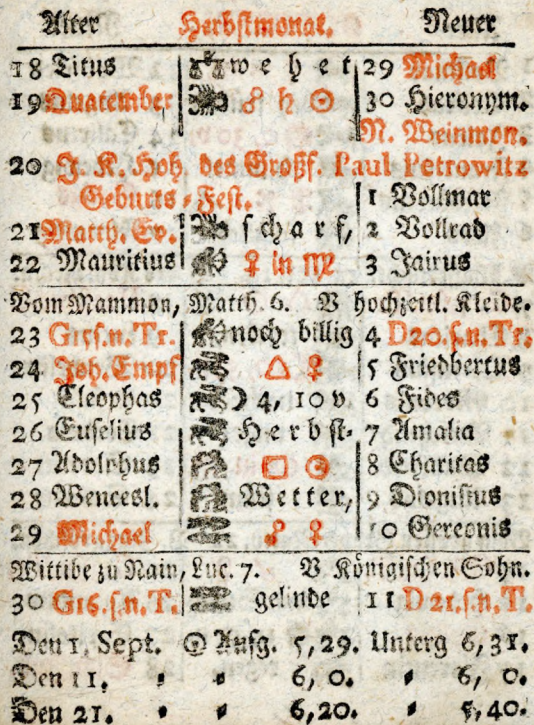 Alter Herbstmonat. Neuer
18 Titus wehet 29 Michael
19 Quatember ☍ ♄ ☉ 30 Hieronym.
N. Weinmon.
20 J. K. Hoh. des Großf. Paul Petrowitz
Geburts-Fest. 1 Vollmar
21 Matth. Ev. scharf, 2 Vollrad
22 Mauritius ♀ in ♍ 3 Jairus
Vom Mammon, Matth. 6. V hochzeitl. Kleide.
23 G15 s.n.Tr. noch billig 4 D20. s.n.Tr.
24 Joh. Empf △ ♀ 5 Friedbertus
25 Cleophas ☽ 4, 10 v. 6 Fides
26 Eusebius Herbst- 7 Amalia
27 Adolphus □ ☉ 8 Charitas
28 Wencesl. Wetter, 9 Dionisius
29 Michael ☍ ♀ 10 Gereonis
Wittibe zu Nain, Luc. 7. V Königischen Sohn.
30 G16. s.n.T. gelinde 11 D 21. s.n.T.
Den 1. Sept. ☉ Aufg. 5,29. Unterg 6,31.
Den 11. 6, 0. 6, 0.
Den 21. 6,20. 5,40.